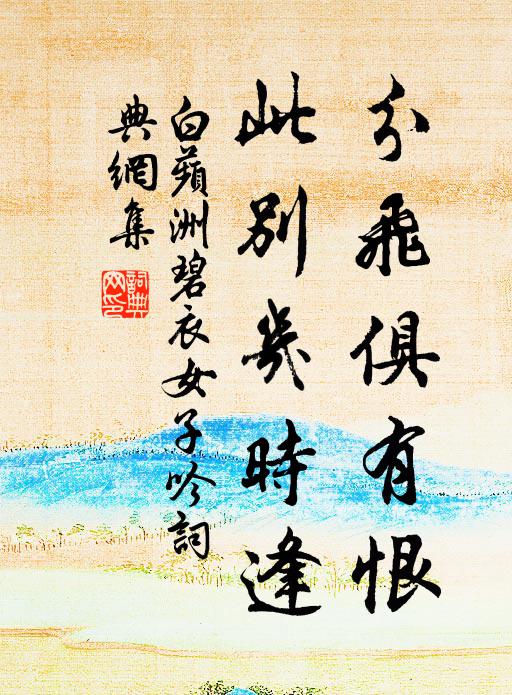 分飛俱有恨
此別幾時逢
白蘋洲碧衣女子吟詞
典網集
詞典
网印